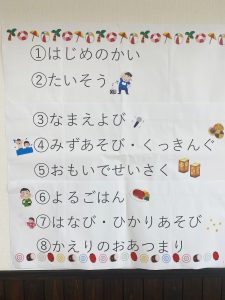 ①はじめのかい
②たいそう
③なまえよび
④みずあそび・くっきんぐ
⑤おもいでせいさく
⑥よるごはん
⑦はなび・ひかりあそび
⑧かえりのおあつまり